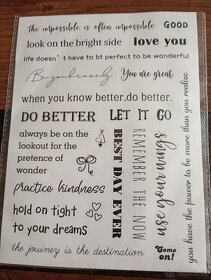 the impossible is often impossible GOOD
look on the bright side love you
life doesn't have to bt perfect to be wonderful
Be you You are great
when you know better,do better.
DO BETTER LET IT GO
always be on the
lookout for the
pretence of
wonder
practice kindness
hold on tight
to your dreams
the journey is the destination
BEST DAY EVER
REMEMBER THE NOW
use your wings
you have the power to be more than you realize
Come
on!